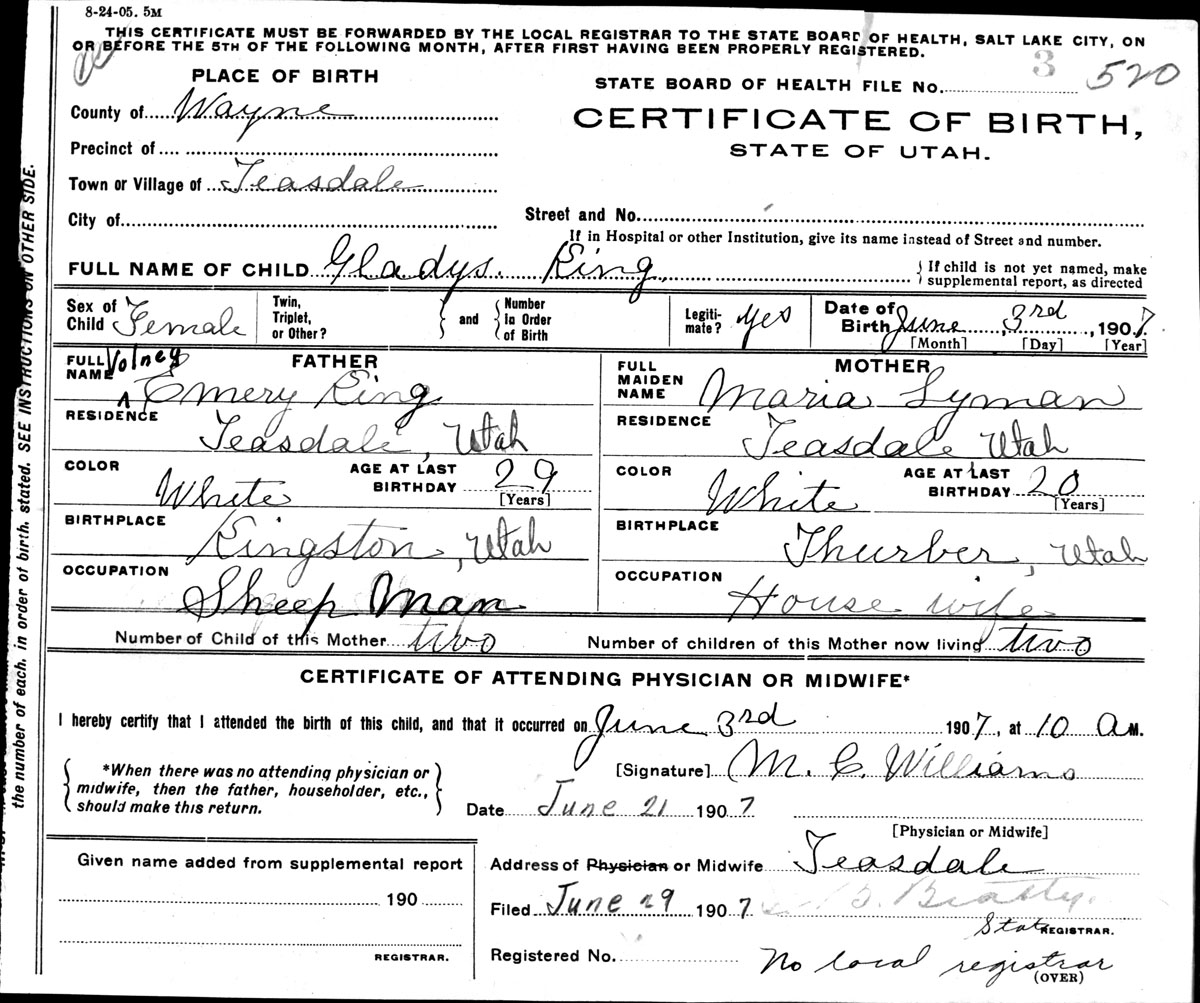 8-24-05. 5M
THIS CERTIFICATE MUST BE FORWARDED BY THE LOCAL REGISTRAR TO THE STATE BOARD OF HEALTH, SALT LAKE CITY, ON
OR BEFORE THE 5TH OF THE FOLLOWING MONTH, AFTER FIRST HAVING BEEN PROPERLY REGISTERED.
PLACE OF BIRTH
3 520
STATE BOARD OF HEALTH FILE No.
County of Wayne
CERTIFICATE OF BIRTH,
Precinct of
STATE OF UTAH.
Town or Village of Teasdale
City of
Street and No.
If in Hospital or other Institution, give its name instead of Street and number.
FULL NAME OF CHILD Gladys. King. } If child is not yet named, make supplemental report, as directed
Sex of Child Female Twin, Triplet, or Other? } and { Number in Order of Birth Legiti-mate? yes Date of Birth June 3rd, 1907.
[Month] [Day] [Year]
FATHER
FULL NAME Volney Emery King
RESIDENCE Teasdale, Utah
COLOR White AGE AT LAST BIRTHDAY 29 [Years]
BIRTHPLACE Kingston, Utah
OCCUPATION Sheep Man
MOTHER
FULL MAIDEN NAME Maria Lyman
RESIDENCE Teasdale Utah
COLOR White AGE AT LAST BIRTHDAY 20 [Years]
BIRTHPLACE Thurber, Utah
OCCUPATION House wife
Number of Child of this Mother two Number of children of this Mother now living two
CERTIFICATE OF ATTENDING PHYSICIAN OR MIDWIFE*
I hereby certify that I attended the birth of this child, and that it occurred on June 3rd 1907, at 10 A M.
{ *When there was no attending physician or midwife, then the father, householder, etc., should make this return. }
[Signature] M. C. Williams
Date June 21 1907
[Physician or Midwife]
Given name added from supplemental report
190
REGISTRAR.
Address of Physician or Midwife Teasdale
Filed June 29 1907 B. Beatty.
State REGISTRAR.
Registered No. No local registrar
(OVER)
the number of each, in order of birth, stated. SEE INSTRUCTIONS ON OTHER SIDE.